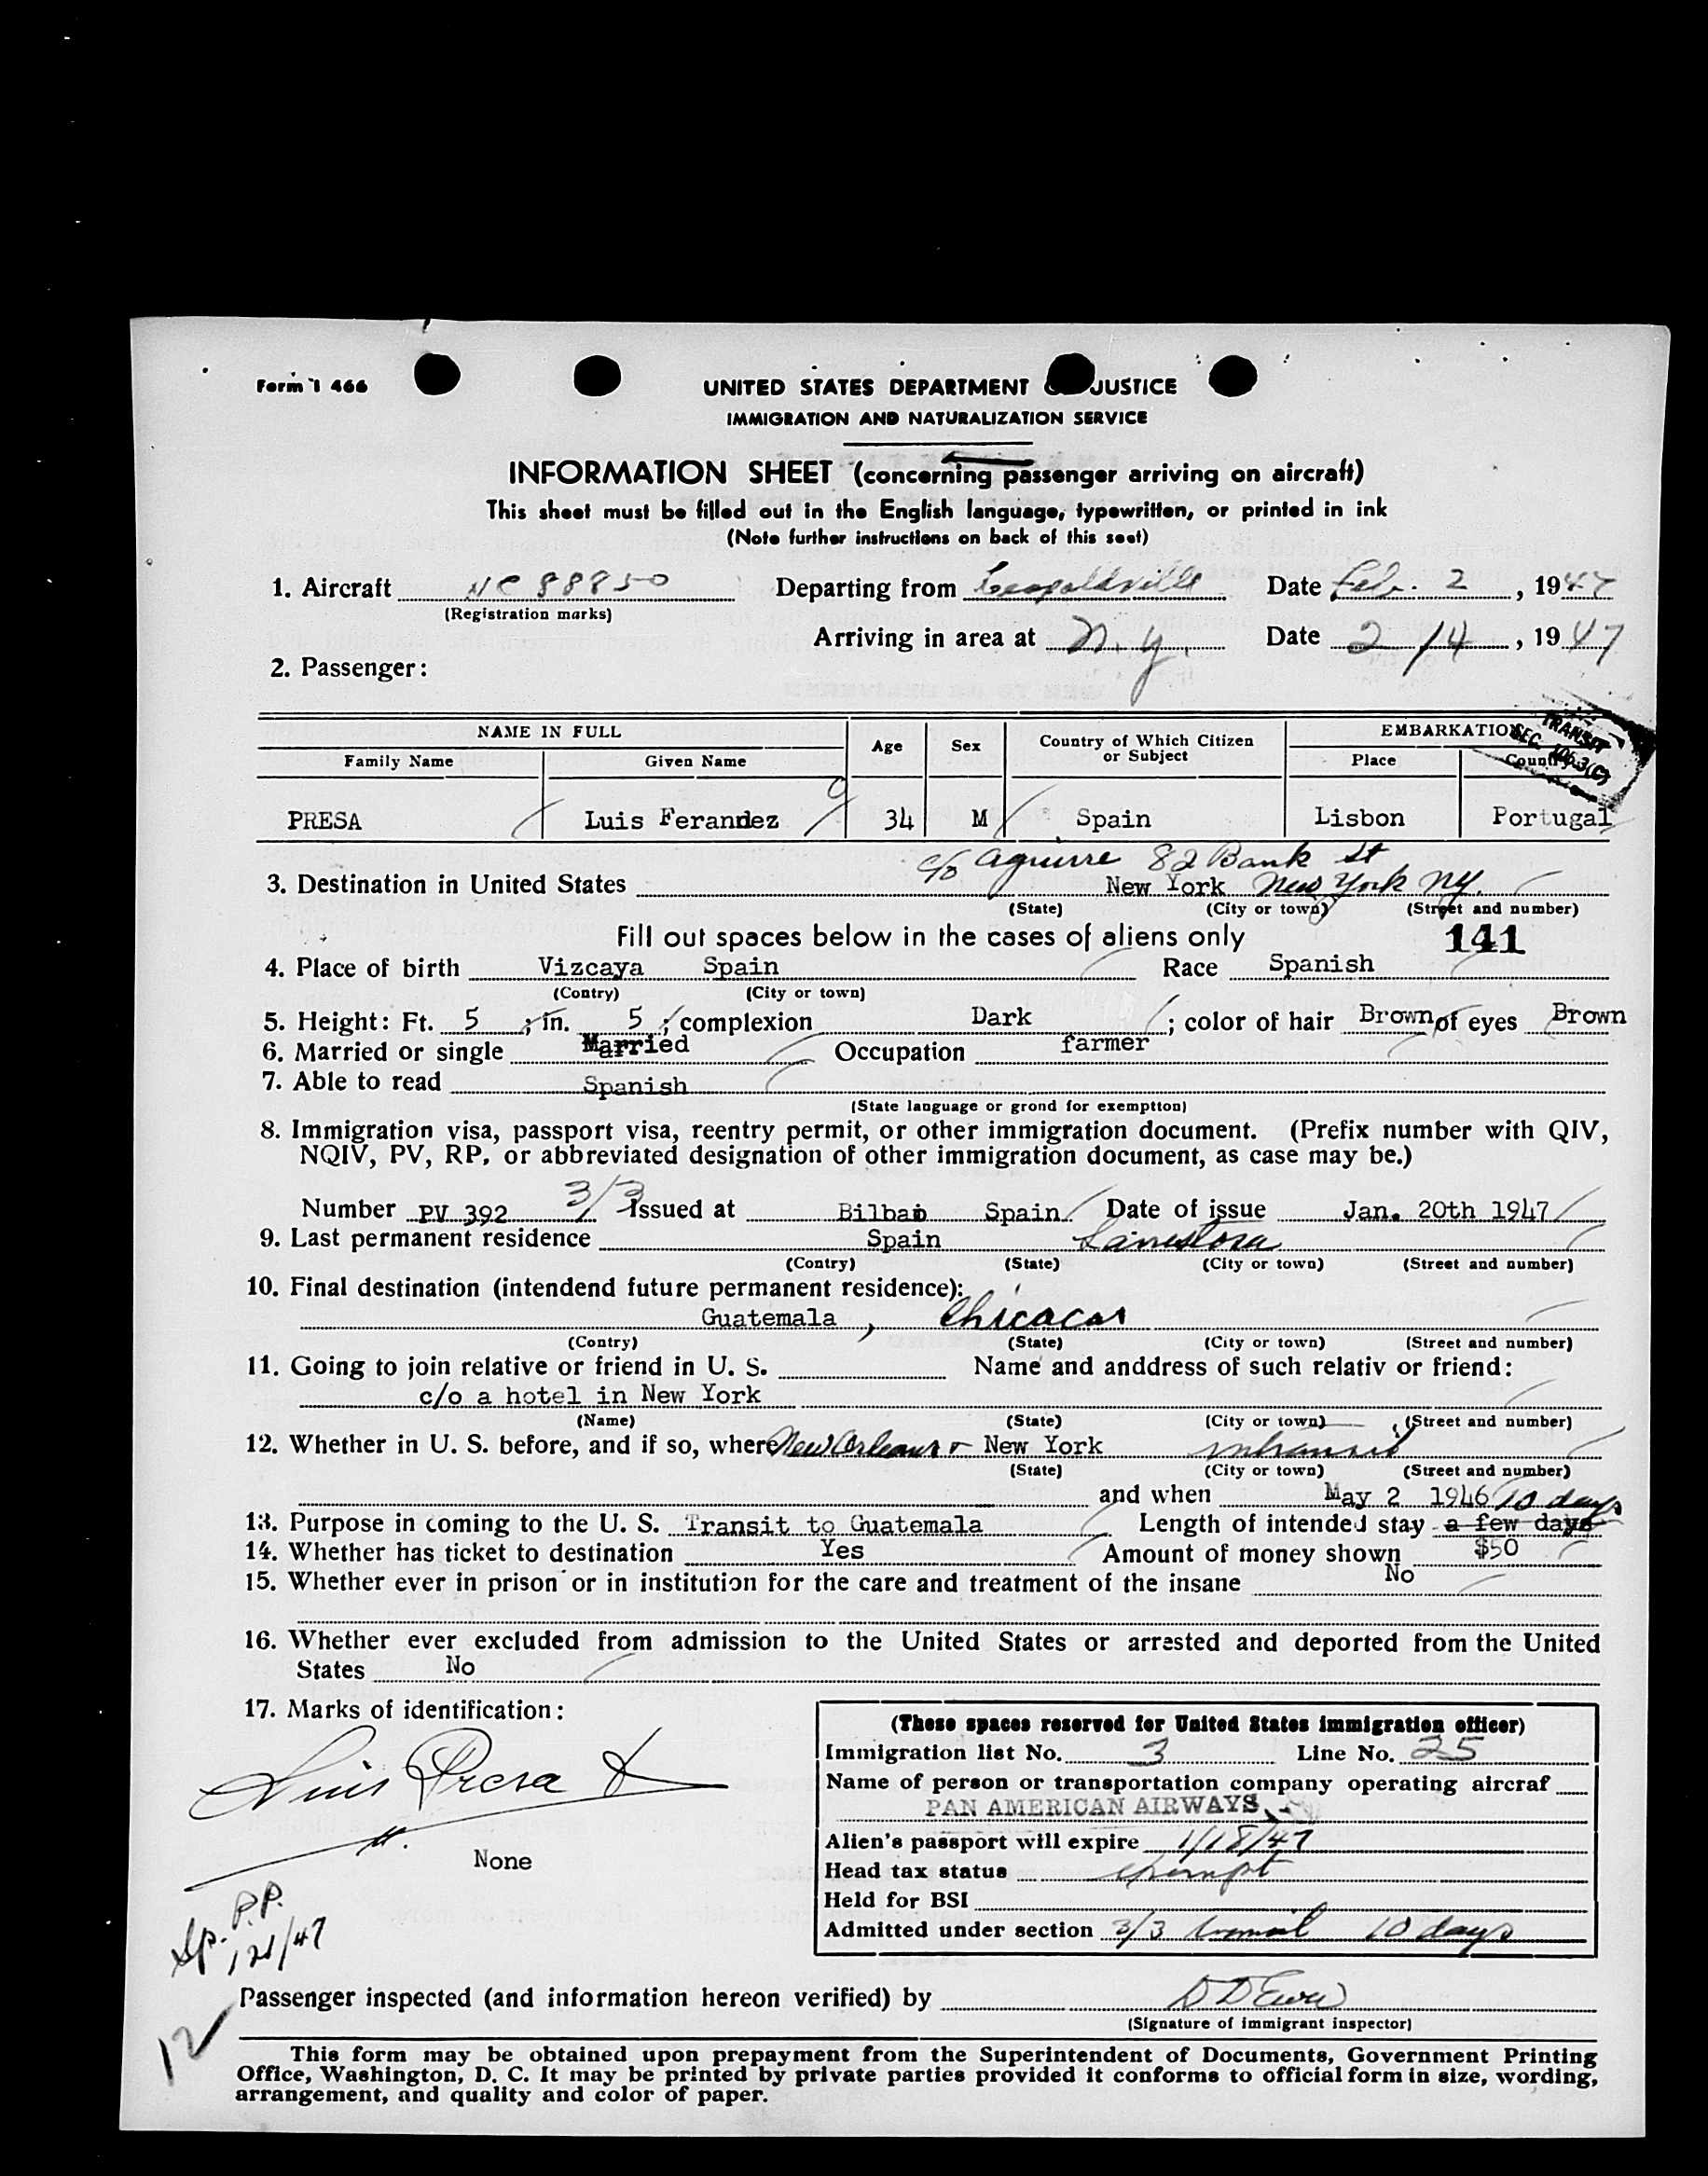 Form I 466
UNITED STATES DEPARTMENT JUSTICE
IMMIGRATION AND NATURALIZATION SERVICE
INFORMATION SHEET (concerning passenger arriving on aircraft)
This sheet must be filled out in the English language, typewritten, or printed in ink
(Note further instructions on back of this seet)
1. Aircraft NC 88850 Departing from Leopoldville Date Feb. 2, 1947
(Registration marks)
Arriving in area at N.Y. Date 2/4, 1947
2. Passenger:
NAME IN FULL Age Sex Country of Which Citizen or Subject EMBARKATION
Family Name Given Name Place Country
TRANSIT
SEC. 106.3(C)
PRESA Luis Ferandez 34 M Spain Lisbon Portugal
c/o Aguirre 82 Bank St
3. Destination in United States New York New York NY.
(State) (City or town) (Street and number)
Fill out spaces below in the cases of aliens only 141
4. Place of birth Vizcaya Spain Race Spanish
(Contry) (City or town)
5. Height: Ft. 5 ; in. 5 ; complexion Dark ; color of hair Brown of eyes Brown
6. Married or single Married Occupation farmer
7. Able to read Spanish
(State language or grond for exemption)
8. Immigration visa, passport visa, reentry permit, or other immigration document. (Prefix number with QIV,
NQIV, PV, RP, or abbreviated designation of other immigration document, as case may be.)
Number PV 392 3/3 Issued at Bilbao Spain Date of issue Jan. 20th 1947
9. Last permanent residence Spain Lanestosa
(Contry) (State) (City or town) (Street and number)
10. Final destination (intendend future permanent residence):
Guatemala, Chicacao
(Contry) (State) (City or town) (Street and number)
11. Going to join relative or friend in U. S. Name and anddress of such relativ or friend:
c/o a hotel in New York
(Name) (State) (City or town) (Street and number)
12. Whether in U. S. before, and if so, where New Orleans + New York intransit
(State) (City or town) (Street and number)
and when May 2 1946 10 days
13. Purpose in coming to the U. S. Transit to Guatemala Length of intended stay a few days
14. Whether has ticket to destination Yes Amount of money shown $50
15. Whether ever in prison or in institution for the care and treatment of the insane No
16. Whether ever excluded from admission to the United States or arrested and deported from the United
States No
17. Marks of identification:
Luis Presa
None
Sp. P.P.
12
(These spaces reserved for United States immigration officer)
Immigration list No. 3 Line No. 25
Name of person or transportation company operating aircraf
PAN AMERICAN AIRWAYS
Alien's passport will expire 1/18/47
Head tax status exempt
Held for BSI
Admitted under section 3/3 10 days
Passenger inspected (and information hereon verified) by
(Signature of immigrant inspector)
This form may be obtained upon prepayment from the Superintendent of Documents, Government Printing
Office, Washington, D. C. It may be printed by private parties provided it conforms to official form in size, wording,
arrangement, and quality and color of paper.